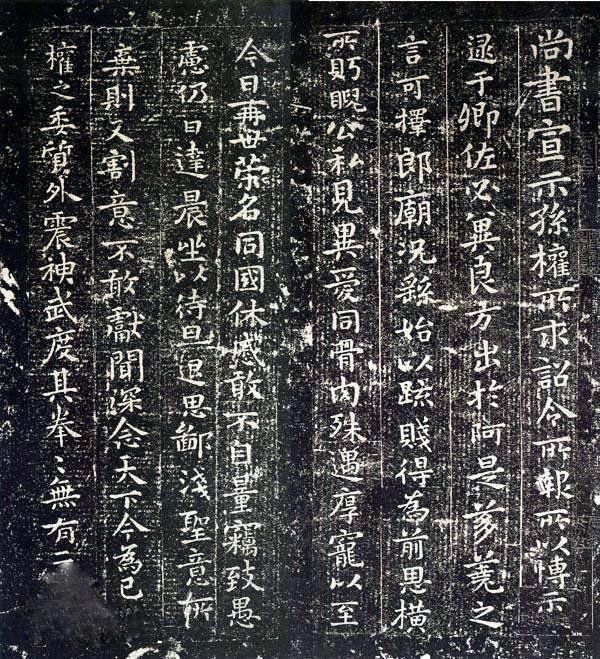 尚書宣示孫權所求詔令所報所以博示
逮于卿佐必冀良方出於阿是芻蕘之
言可擇郎廟況繇始以疏賤得為前恩橫
所眄睨公私見異愛同骨肉殊遇厚寵以至
今日再世榮名同國休慼敢不自量竊致愚
慮仍日達晨坐以待旦退思鄙淺聖意所
棄則又割意不敢獻聞深念天下今為已
權之委質外震神武度其拳〻無有二